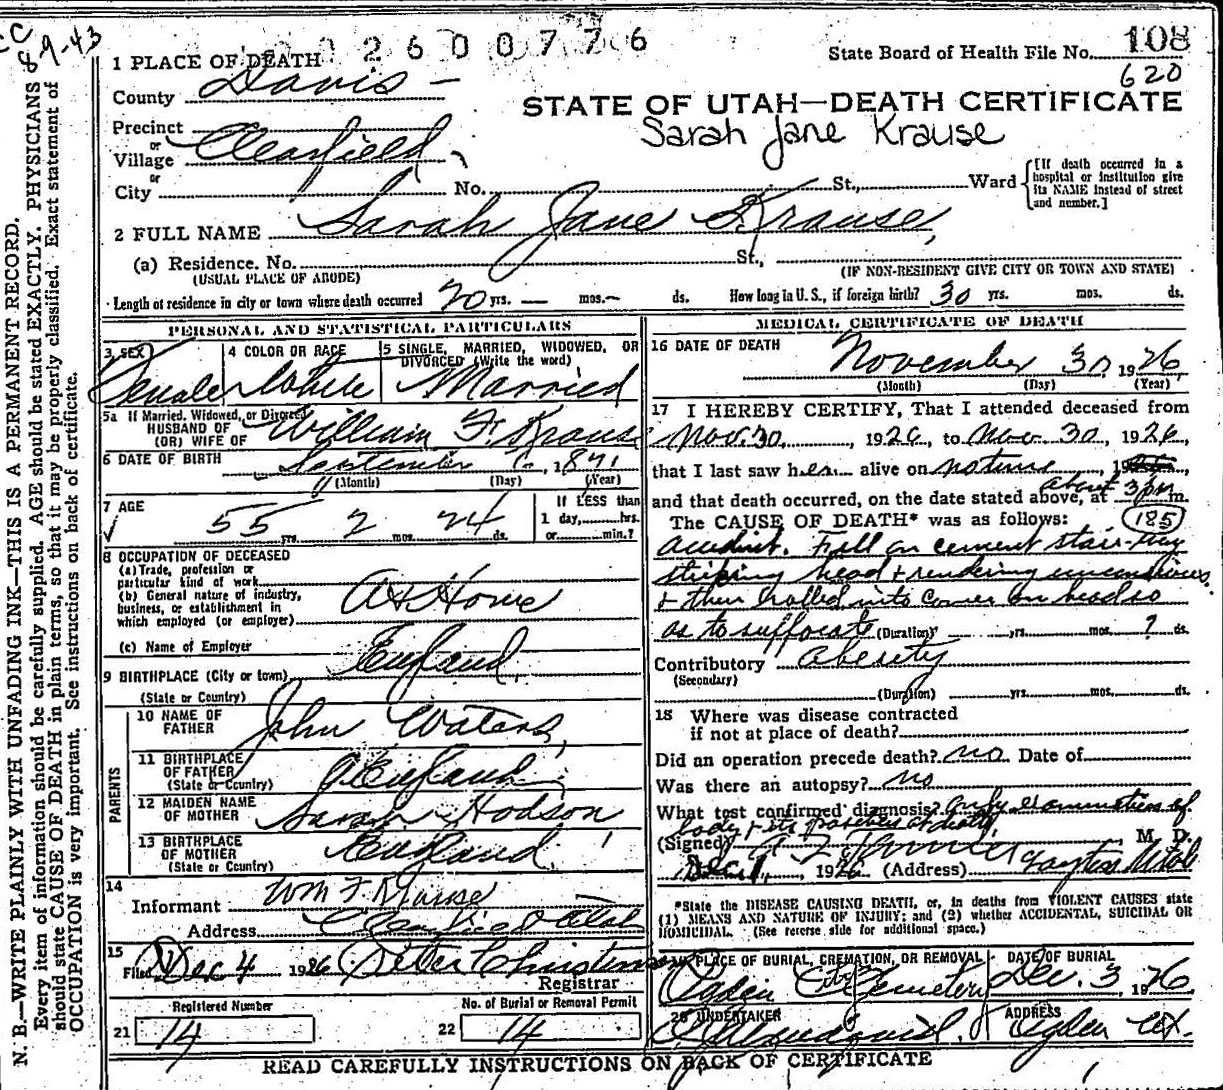 CC
8-9-43
0 2 6 0 0 7 7 6
State Board of Health File No. 108
620
1 PLACE OF DEATH
County Davis —
STATE OF UTAH—DEATH CERTIFICATE
Sarah Jane Krause
Precinct
or
Village Clearfield,
or
City No. St., Ward
[If death occurred in a hospital or institution give its NAME instead of street and number.]
2 FULL NAME Sarah Jane Krause,
(a) Residence. No. St.,
(USUAL PLACE OF ABODE) (IF NON-RESIDENT GIVE CITY OR TOWN AND STATE)
Length of residence in city or town where death occurred 20 yrs. — mos. — ds. How long in U. S., if foreign birth? 30 yrs. mos. ds.
PERSONAL AND STATISTICAL PARTICULARS
3 SEX 4 COLOR OR RACE 5 SINGLE, MARRIED, WIDOWED, OR DIVORCED (Write the word)
Female White Married
5a If Married, Widowed, or Divorced
HUSBAND OF
(OR) WIFE OF William F. Krause
6 DATE OF BIRTH September 6, 1871
(Month) (Day) (Year)
7 AGE
55 yrs. 2 mos. 24 ds.
If LESS than
1 day, hrs.
or min.?
8 OCCUPATION OF DECEASED
(a) Trade, profession or
particular kind of work
(b) General nature of industry,
business, or establishment in
which employed (or employer)
At Home
(c) Name of Employer
9 BIRTHPLACE (City or town) England,
(State or Country)
PARENTS
10 NAME OF
FATHER John Waters,
11 BIRTHPLACE
OF FATHER England
(State or Country)
12 MAIDEN NAME
OF MOTHER Sarah Hodson
13 BIRTHPLACE
OF MOTHER England
(State or Country)
14
Informant Wm F Krause
Address Clearfield Utah
15
Filed Dec 4 1926 Christensen
Registrar
Registered Number No. of Burial or Removal Permit
21 14 22 14
MEDICAL CERTIFICATE OF DEATH
16 DATE OF DEATH
November 30, 1926
(Month) (Day) (Year)
17 I HEREBY CERTIFY, That I attended deceased from
Nov. 30, 1926, to Nov. 30, 1926,
that I last saw her alive on no time, 19
and that death occurred, on the date stated above, at about 3 pm m.
The CAUSE OF DEATH* was as follows: 185
Accident. Fall on cement stair-way
striking head & rendering unconscious
& then rolled into corner on head so
as to suffocate (Duration) yrs. mos. ? ds.
Contributory obesity
(Secondary)
(Duration) yrs. mos. ds.
18 Where was disease contracted
if not at place of death?
Did an operation precede death? no Date of
Was there an autopsy? no
What test confirmed diagnosis? Only examination of
body & its position at death,
(Signed) M. D.
Dec 1, 1926 (Address) Layton Utah
*State the DISEASE CAUSING DEATH, or, in deaths from VIOLENT CAUSES state
(1) MEANS AND NATURE OF INJURY; and (2) whether ACCIDENTAL, SUICIDAL OR
HOMICIDAL. (See reverse side for additional space.)
PLACE OF BURIAL, CREMATION, OR REMOVAL DATE OF BURIAL
Ogden City Cemetery Dec. 3, 1926
20 UNDERTAKER ADDRESS
Ogden Ut.
READ CAREFULLY INSTRUCTIONS ON BACK OF CERTIFICATE
N. B.—WRITE PLAINLY WITH UNFADING INK—THIS IS A PERMANENT RECORD.
Every item of information should be carefully supplied. AGE should be stated EXACTLY. PHYSICIANS
should state CAUSE OF DEATH in plain terms, so that it may be properly classified. Exact statement of
OCCUPATION is very important. See instructions on back of certificate.